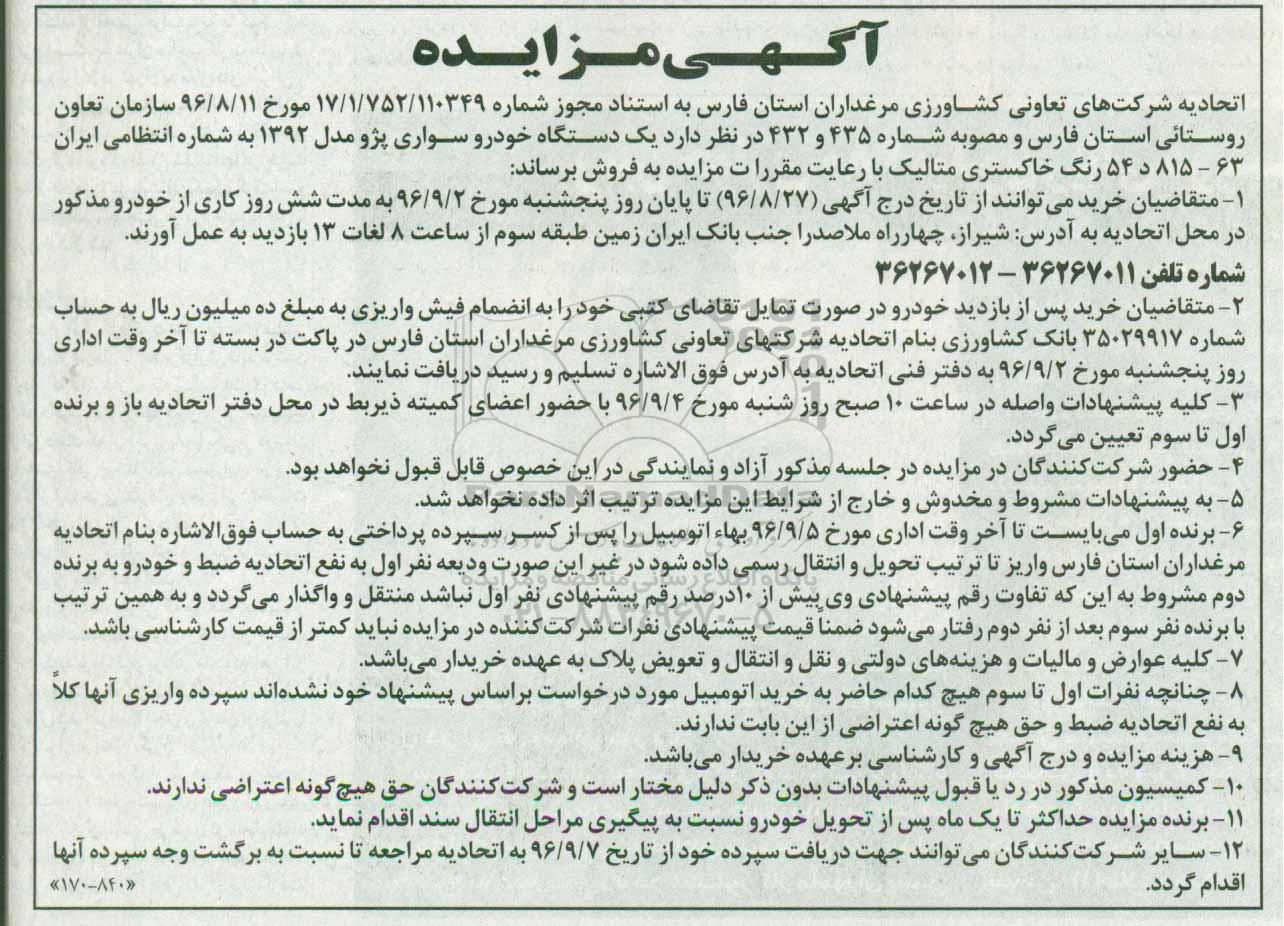 آگهی مزایده
اتحادیه شرکت‌های تعاونی کشاورزی مرغداران استان فارس به استناد مجوز شماره ۱۷/۱/۷۵۲/۱۱۰۳۴۹ مورخ ۹۶/۸/۱۱ سازمان تعاون
روستائی استان فارس و مصوبه شماره ۴۳۵ و ۴۳۲ در نظر دارد یک دستگاه خودرو سواری پژو مدل ۱۳۹۲ به شماره انتظامی ایران
۶۳ – ۸۱۵ د ۵۴ رنگ خاکستری متالیک با رعایت مقررات مزایده به فروش برساند:
۱- متقاضیان خرید می‌توانند از تاریخ درج آگهی (۹۶/۸/۲۷) تا پایان روز پنجشنبه مورخ ۹۶/۹/۲ به مدت شش روز کاری از خودرو مذکور
در محل اتحادیه به آدرس: شیراز، چهارراه ملاصدرا جنب بانک ایران زمین طبقه سوم از ساعت ۸ لغات ۱۳ بازدید به عمل آورند.
شماره تلفن ۳۶۲۶۷۰۱۱ – ۳۶۲۶۷۰۱۲
۲- متقاضیان خرید پس از بازدید خودرو در صورت تمایل تقاضای کتبی خود را به انضمام فیش واریزی به مبلغ ده میلیون ریال به حساب
شماره ۳۵۰۲۹۹۱۷ بانک کشاورزی بنام اتحادیه شرکتهای تعاونی کشاورزی مرغداران استان فارس در پاکت در بسته تا آخر وقت اداری
روز پنجشنبه مورخ ۹۶/۹/۲ به دفتر فنی اتحادیه به آدرس فوق الاشاره تسلیم و رسید دریافت نمایند.
۳- کلیه پیشنهادات واصله در ساعت ۱۰ صبح روز شنبه مورخ ۹۶/۹/۴ با حضور اعضای کمیته ذیربط در محل دفتر اتحادیه باز و برنده
اول تا سوم تعیین می‌گردد.
۴- حضور شرکت‌کنندگان در مزایده در جلسه مذکور آزاد و نمایندگی در این خصوص قابل قبول نخواهد بود.
۵- به پیشنهادات مشروط و مخدوش و خارج از شرایط این مزایده ترتیب اثر داده نخواهد شد.
۶- برنده اول می‌بایست تا آخر وقت اداری مورخ ۹۶/۹/۵ بهاء اتومبیل را پس از کسر سپرده پرداختی به حساب فوق‌الاشاره بنام اتحادیه
مرغداران استان فارس واریز تا ترتیب تحویل و انتقال رسمی داده شود در غیر این صورت ودیعه نفر اول به نفع اتحادیه ضبط و خودرو به برنده
دوم مشروط به این که تفاوت رقم پیشنهادی وی بیش از ۱۰درصد رقم پیشنهادی نفر اول نباشد منتقل و واگذار می‌گردد و به همین ترتیب
با برنده نفر سوم بعد از نفر دوم رفتار می‌شود ضمناً قیمت پیشنهادی نفرات شرکت‌کننده در مزایده نباید کمتر از قیمت کارشناسی باشد.
۷- کلیه عوارض و مالیات و هزینه‌های دولتی و نقل و انتقال و تعویض پلاک به عهده خریدار می‌باشد.
۸- چنانچه نفرات اول تا سوم هیچ کدام حاضر به خرید اتومبیل مورد درخواست براساس پیشنهاد خود نشده‌اند سپرده واریزی آنها کلاً
به نفع اتحادیه ضبط و حق هیچ گونه اعتراضی از این بابت ندارند.
۹- هزینه مزایده و درج آگهی و کارشناسی برعهده خریدار می‌باشد.
۱۰- کمیسیون مذکور در رد یا قبول پیشنهادات بدون ذکر دلیل مختار است و شرکت‌کنندگان حق هیچ‌گونه اعتراضی ندارند.
۱۱- برنده مزایده حداکثر تا یک ماه پس از تحویل خودرو نسبت به پیگیری مراحل انتقال سند اقدام نماید.
۱۲- سایر شرکت‌کنندگان می‌توانند جهت دریافت سپرده خود از تاریخ ۹۶/۹/۷ به اتحادیه مراجعه تا نسبت به برگشت وجه سپرده آنها
اقدام گردد.
«۱۷۰-۸۴۰»